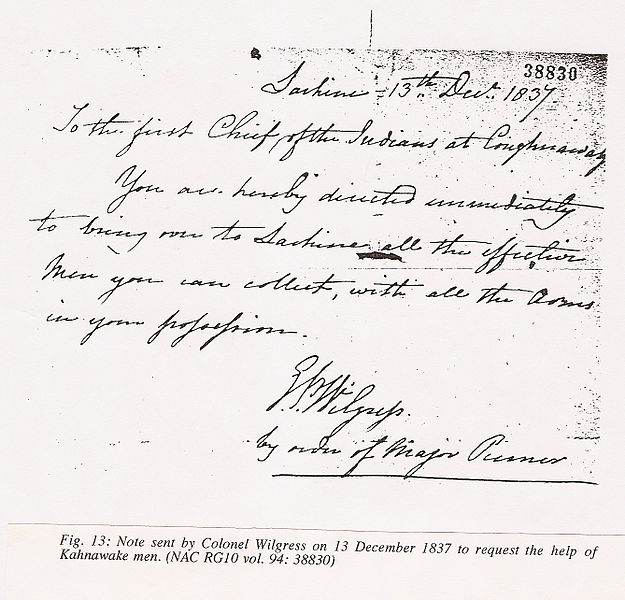 38830
Lachine - 13th Decr. 1837
To the first Chief, of the Indians at Coughnaway
You are hereby directed immediately
to bring over to Lachine all the effective
Men you can collect, with all the Arms
in your possession.
Wilgress.
by order of Major Penner
Fig. 13: Note sent by Colonel Wilgress on 13 December 1837 to request the help of
Kahnawake men. (NAC RG10 vol. 94: 38830)